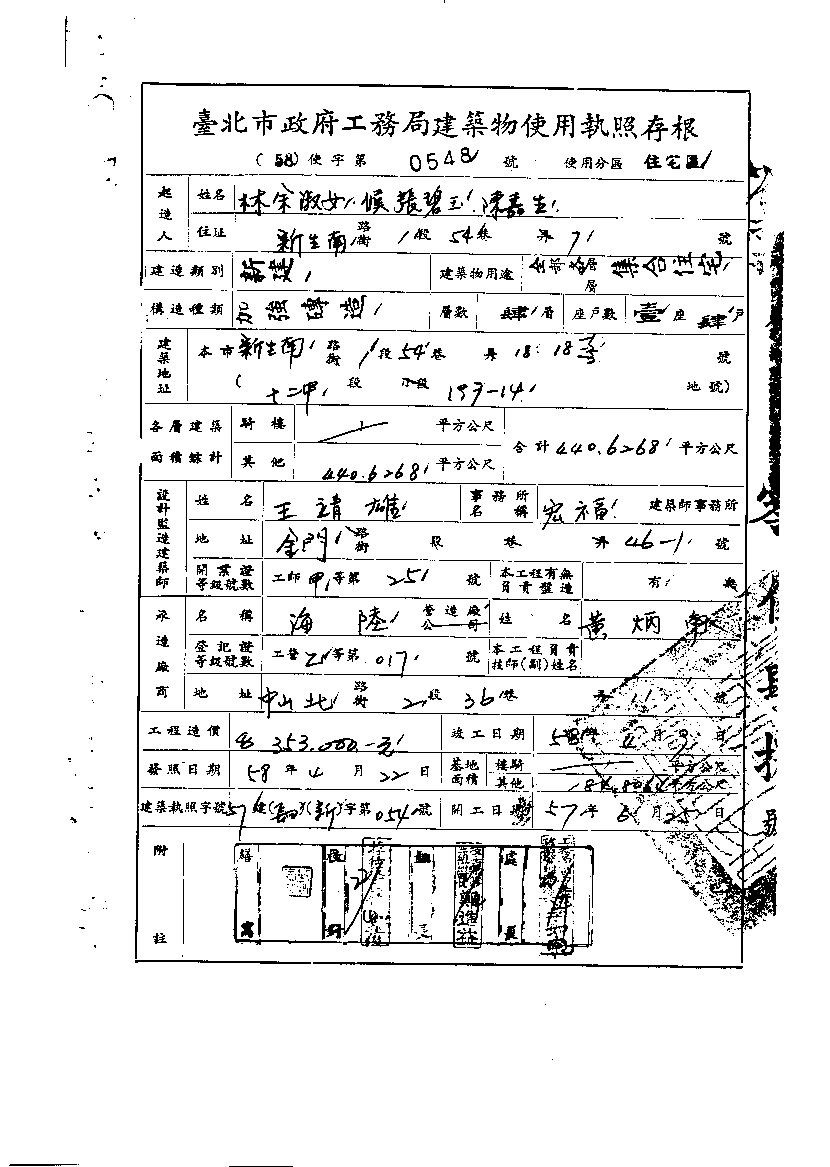 臺北市政府工務局建築物使用執照存根
(58)使字第 0548 號 使用分區 住宅區
起造人 姓名 林余淑女 候張碧玉 陳嘉生
住址 新生南 路街 1 段 54 巷 弄 71 號
建造類別 新建 建築物用途 全部各層 層 集合住宅
構造種類 加強磚造 層數 肆 層 座戶數 壹 座 肆 戶
建築地址 本市 新生南 路街 1 段 54 巷 弄 18 18 號
( 十二甲 段 小段 193-14 地號)
各層建築面積總計 騎樓 平方公尺 合計 440.6268 平方公尺
其他 440.6268 平方公尺
設計監造建築師 姓名 王靖雄 事務所名稱 宏福 建築師事務所
地址 金門 路街 段 巷 弄 46-1 號
開業證等級號數 工師 甲 等第 251 號 本工程有無負責監造 有 無
承造廠商 名稱 海陸 營造廠公司 姓名 黃炳
登記證等級號數 工營 乙 等第 017 號 本工程負責技師(副)姓名
地址 中山北 路街 2 段 36 巷 弄 11 號
工程造價 353.000-元 竣工日期 58 年 4 月 9 日
發照日期 58 年 4 月 22 日 基地面積 樓騎 平方公尺
其他 平方公尺
建築執照字號 57 建 字第 054 號 開工日期 57 年 月 25 日
附註 繕寫 校對